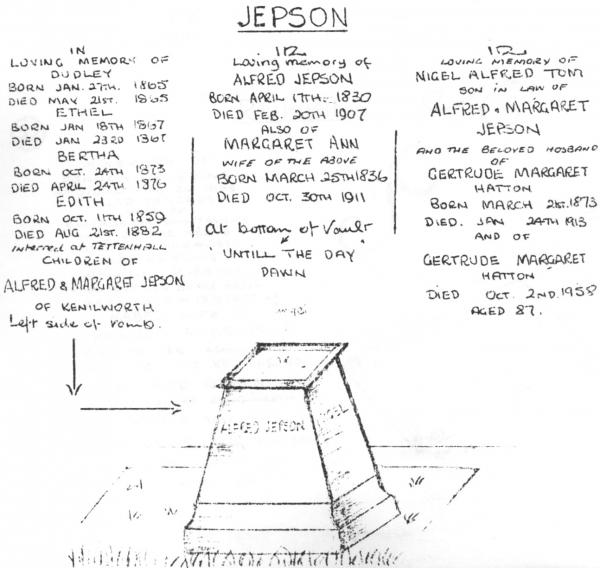 JEPSON
IN
LOVING MEMORY OF
DUDLEY
BORN JAN. 27TH. 1865
DIED MAY 21ST. 1865
ETHEL
BORN JAN 18TH 1867
DIED JAN 23RD 1867
BERTHA
BORN OCT. 24TH 1873
DIED APRIL 24TH 1876
EDITH
BORN OCT. 11TH 1859
DIED AUG 21ST. 1882
interred at TETTENHALL
CHILDREN OF
ALFRED & MARGARET JEPSON
OF KENILWORTH
Left side of tomb.
IN
Loving memory of
ALFRED JEPSON
BORN APRIL 17TH. 1830
DIED FEB. 20TH 1907
ALSO OF
MARGARET ANN
WIFE OF THE ABOVE
BORN MARCH 25TH 1836
DIED OCT. 30TH 1911
At bottom of Vault
"UNTILL THE DAY"
DAWN
IN
LOVING MEMORY OF
NIGEL ALFRED TOM
SON IN LAW OF
ALFRED & MARGARET
JEPSON
AND THE BELOVED HUSBAND
OF
GERTRUDE MARGARET
HATTON
BORN MARCH 21ST. 1873
DIED. JAN 24TH 1913
AND OF
GERTRUDE MARGARET
HATTON
DIED OCT. 2ND. 1958
AGED 87.
ALFRED JEPSON
NIGEL